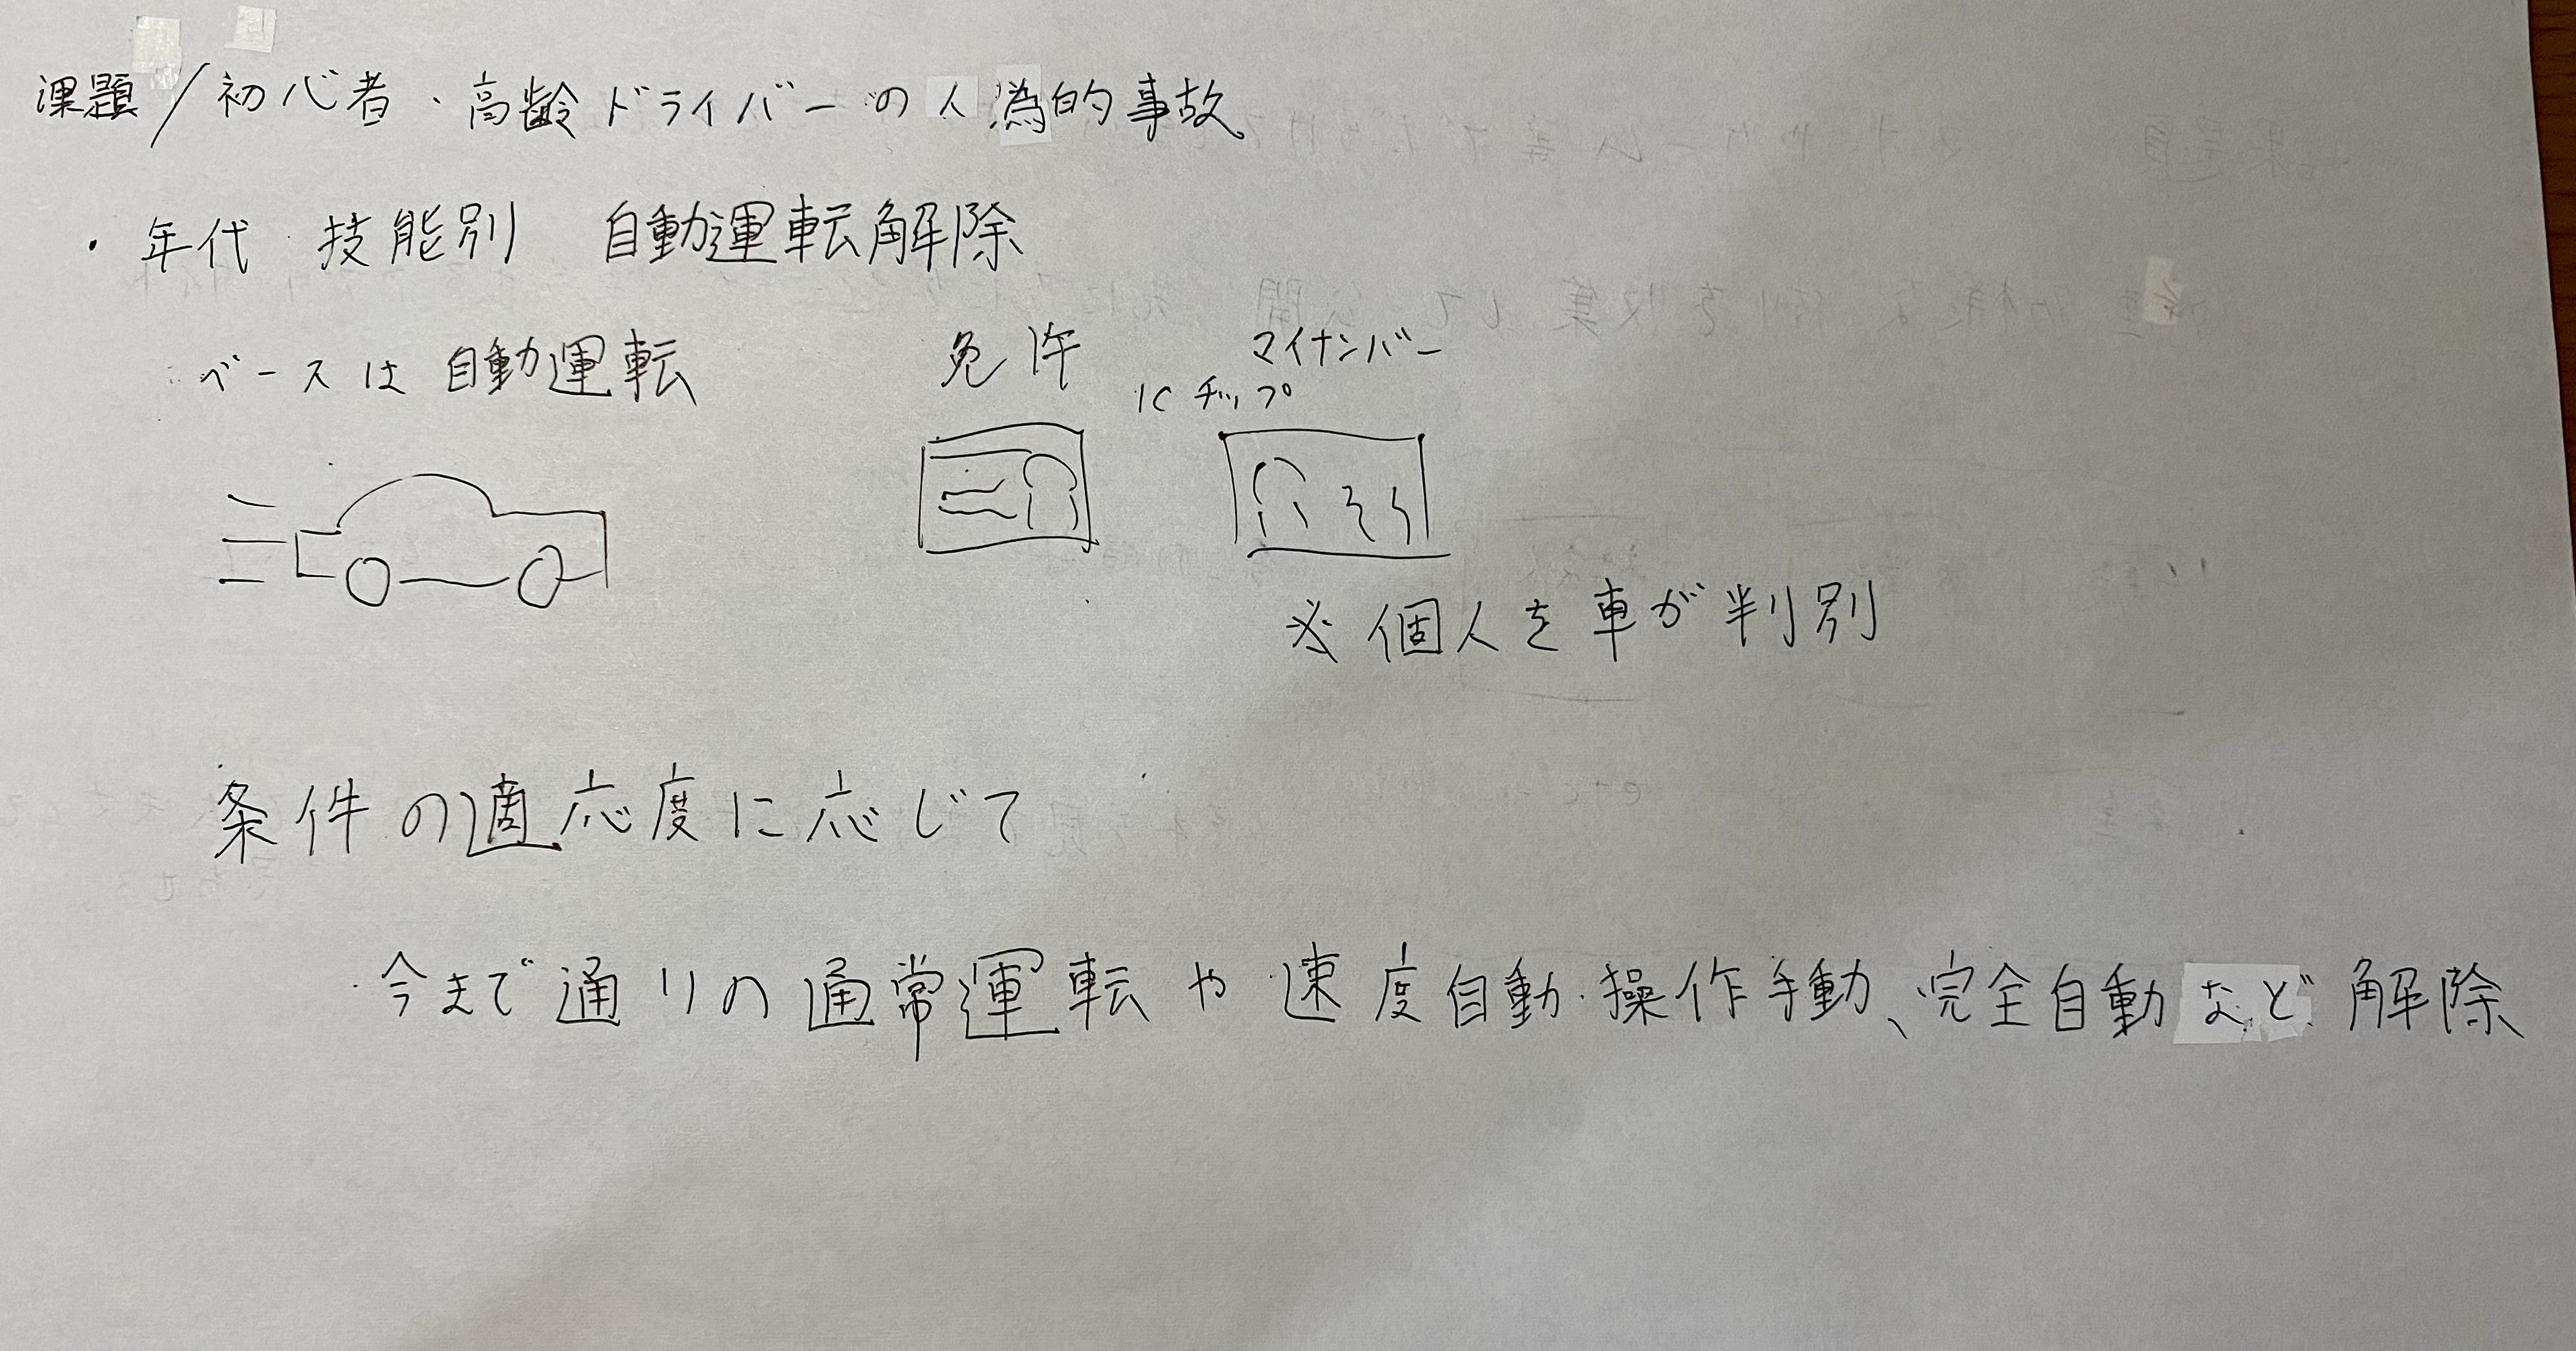 課題/初心者・高齢ドライバーの人為的事故
・年代 技能別 自動運転解除
ベースは自動運転
免許
マイナンバー
ICチップ
※個人を車が判別
条件の適応度に応じて
今まで通りの通常運転や速度自動・操作手動、完全自動など解除